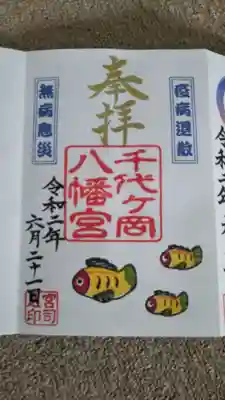 疫病退散
奉拝
無病息災
千代ヶ岡
八幡宮
令和二年
六月二十一日
宮司
印
令和二年